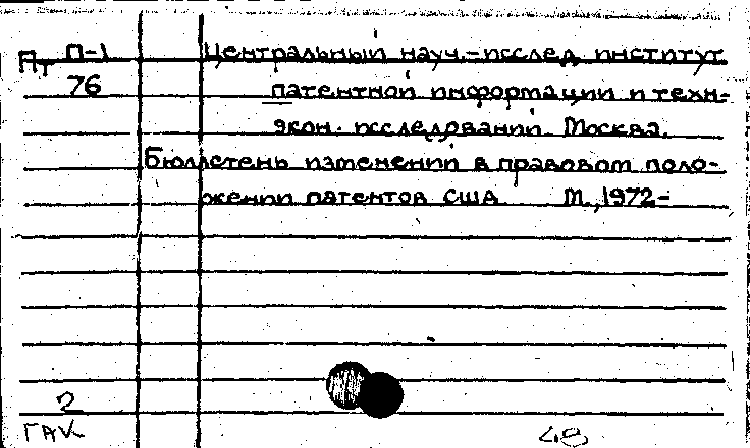 Пт П-1 Центральный науч.-исслед. институт
76 патентной информации и техн-
экон. исследований. Москва.
Бюллетень изменений в правовом поло-
жении патентов США М., 1972-
2
ГАК 48